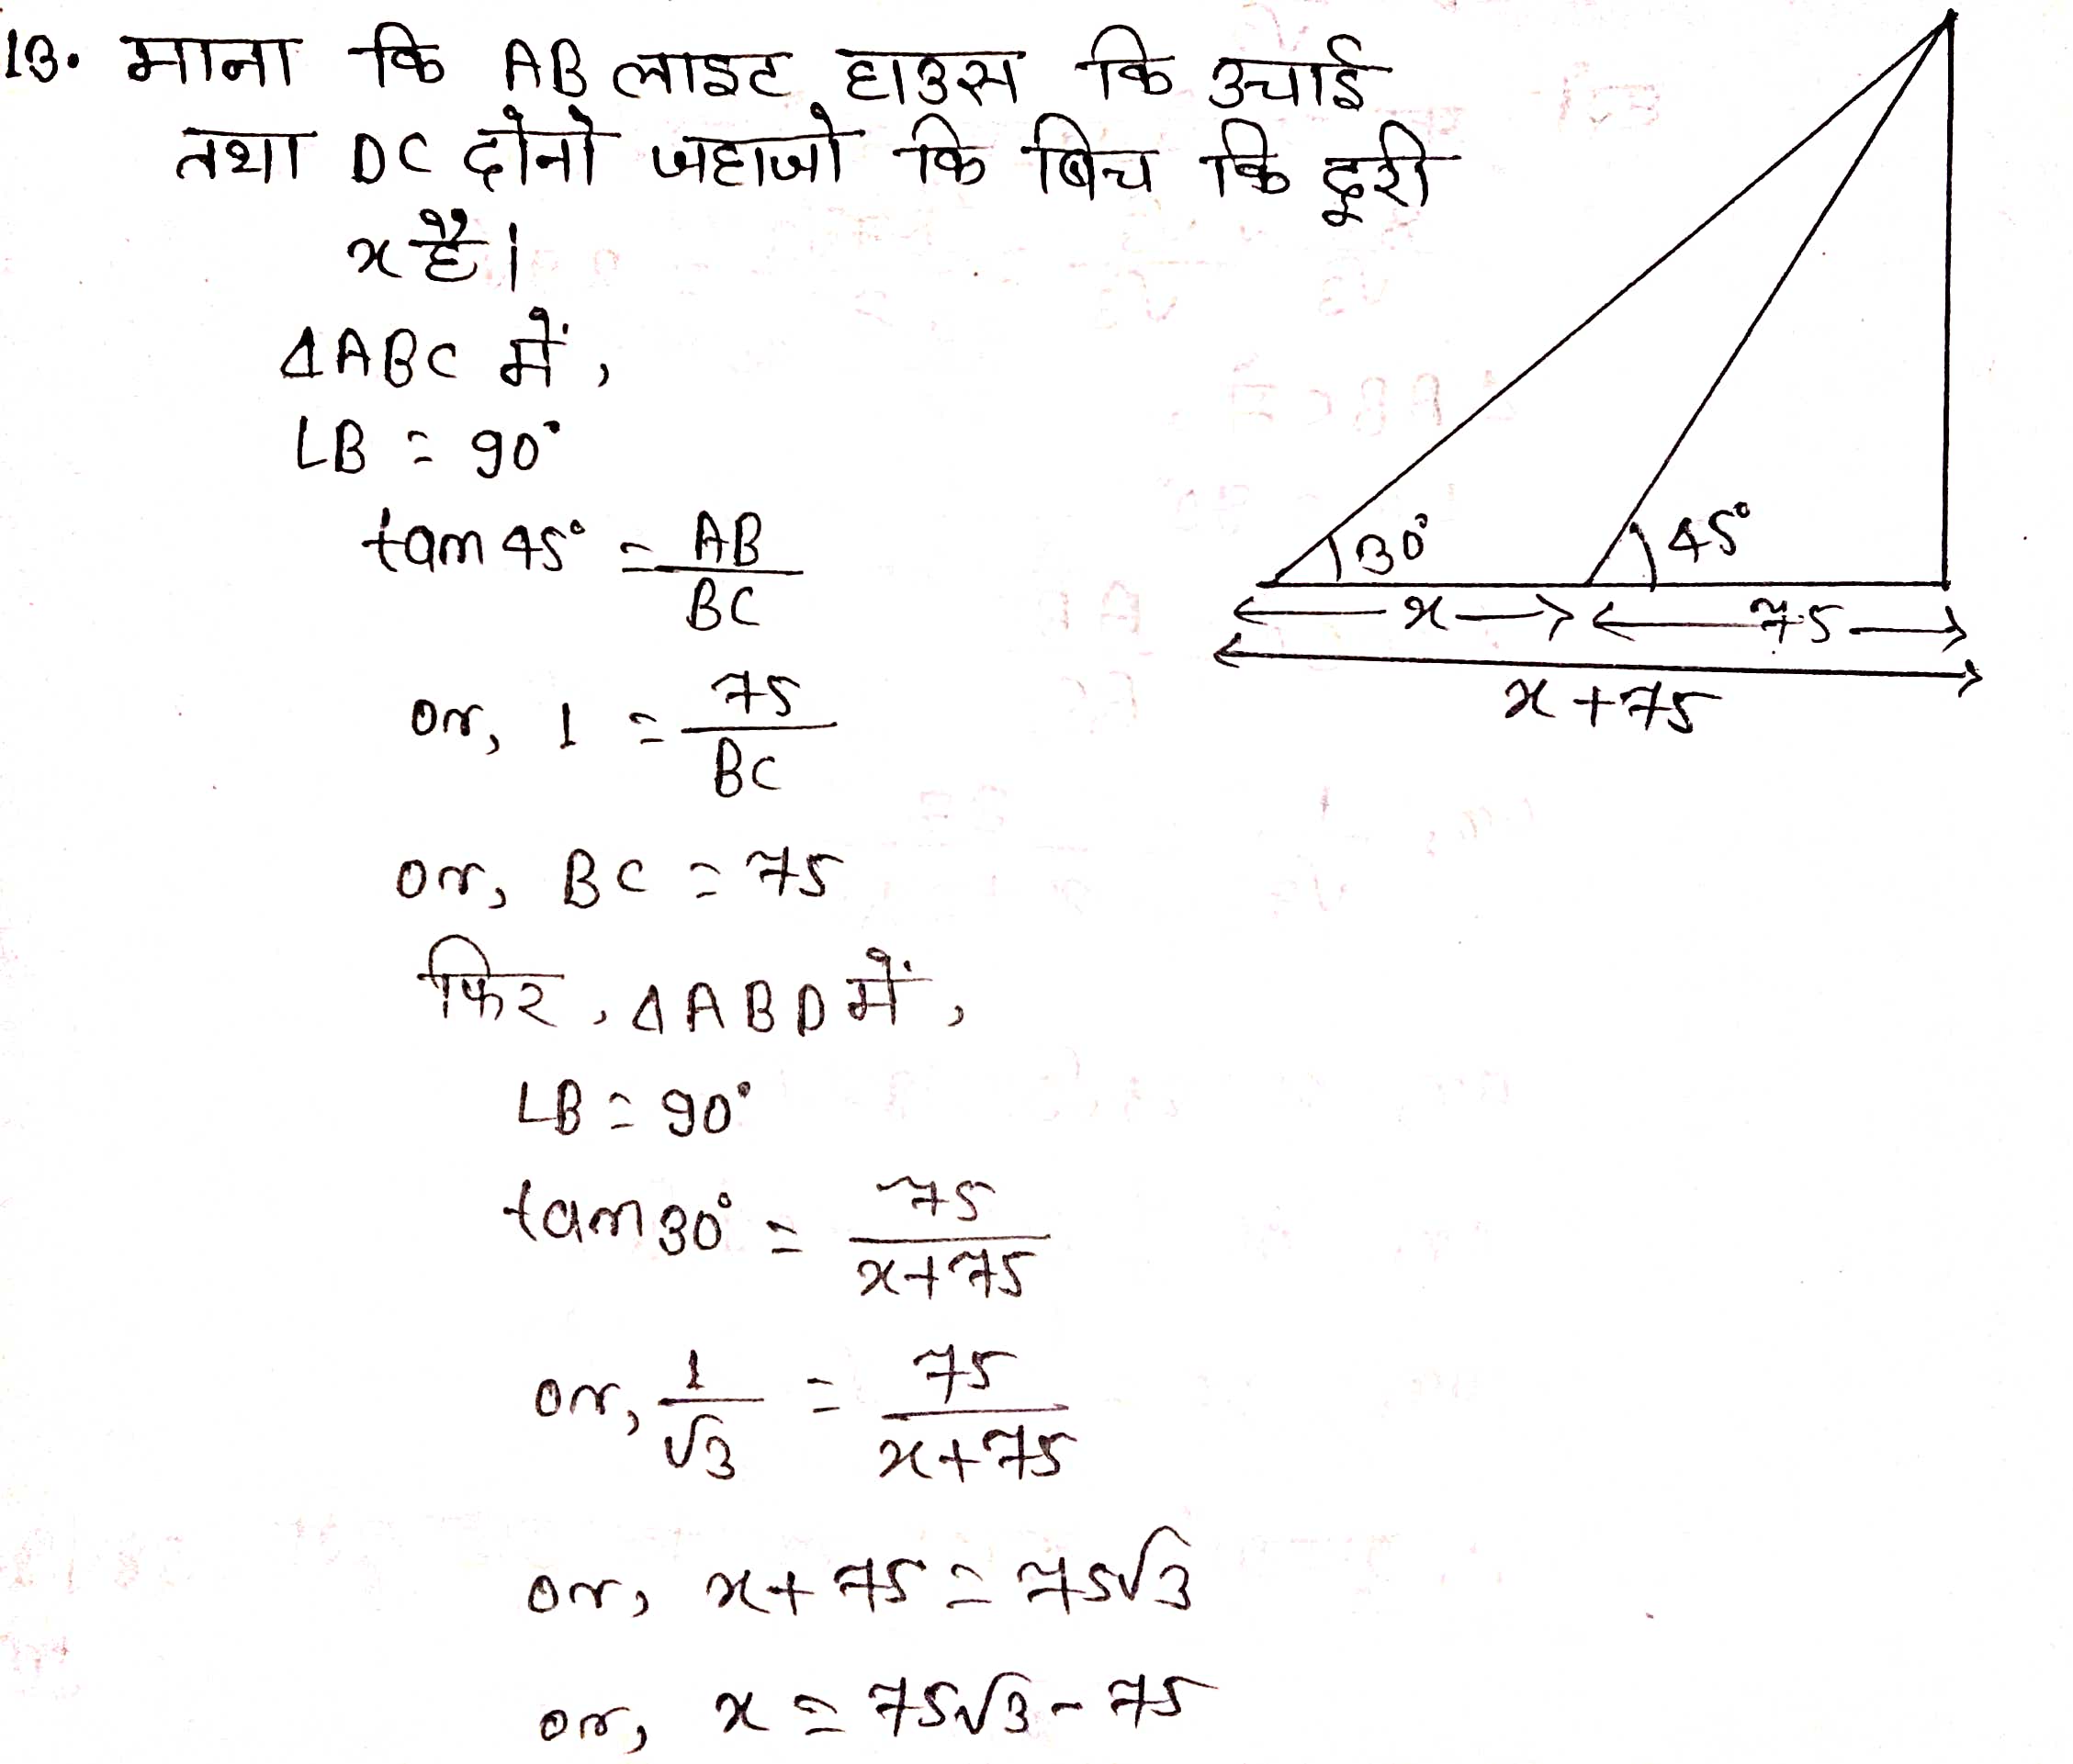 13. माना कि AB लाइट हाउस कि उचाई
तथा DC दोनो जहाजो कि बिच कि दूरी
x है।
ΔABC में,
∠B = 90°
tan 45° = AB/BC
or, 1 = 75/BC
or, BC = 75
फिर, ΔABD में,
∠B = 90°
tan 30° = 75/x+75
or, 1/√3 = 75/x+75
or, x+75 = 75√3
or, x = 75√3 - 75
30°
45°
x
75
x+75